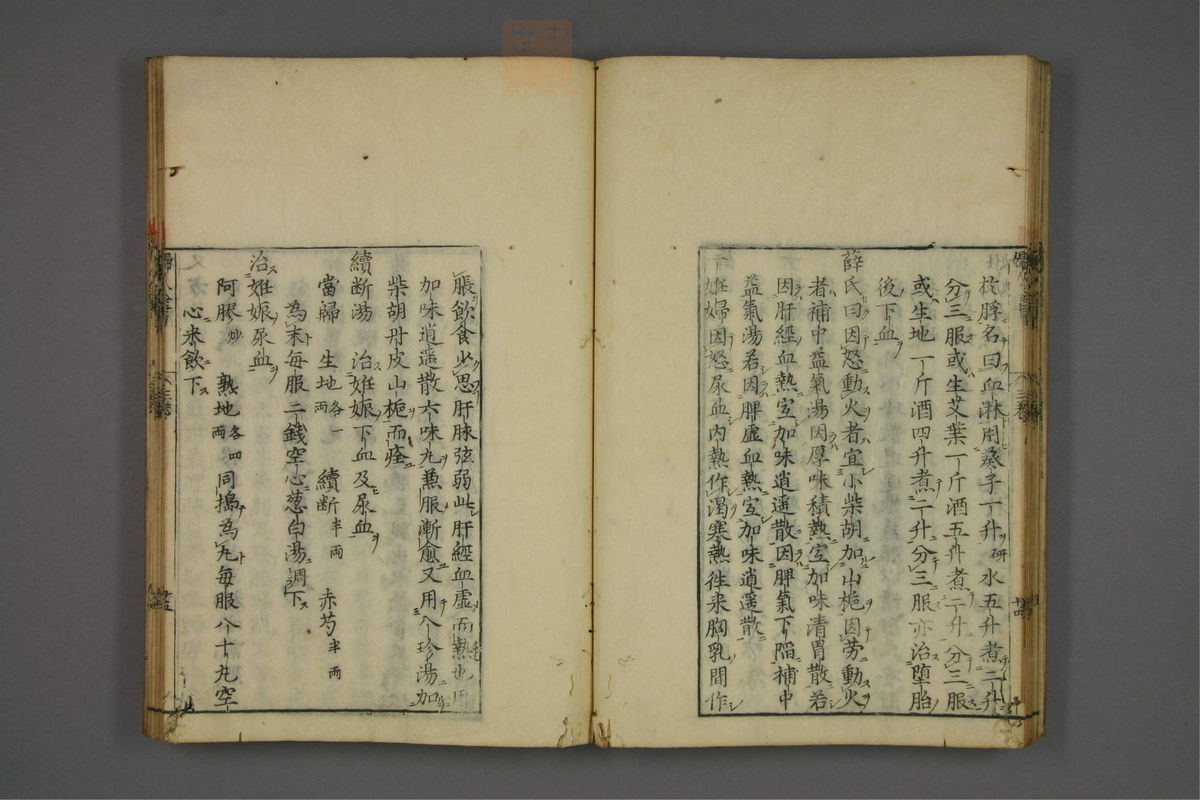 於脬名曰血淋用葵子一升研水五升煮二升
分三服或生艾葉一斤酒五升煮二升分三服
或生地一斤酒四升煮二升分三服亦治墮胎
後下血
薛氏曰因怒動火者宜小柴胡加山梔因勞動火
者補中益氣湯因厚味積熱宜加味清胃散若
因肝經血熱宜加味逍遥散因脾氣下陷補中
益氣湯若因脾虛血熱宜加味逍遥散
一妊婦因怒尿血内熱作渴寒熱往来胸乳間作
脹飲食少思肝脉弦弱此肝經血虛而熱也用
加味逍遥散六味丸兼服漸愈又用八珍湯加
柴胡丹皮山梔而痊
續断湯 治妊娠下血及尿血
當歸 生地各一兩 續断半兩 赤芍半兩
為末每服二錢空心葱白湯調下
治妊娠尿血
阿膠炒 熟地各四兩 同搗為丸每服八十丸空
心米飲下